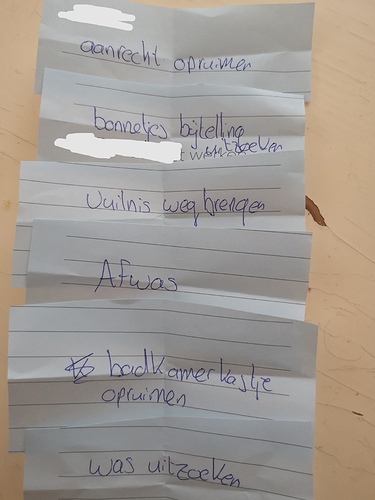 aanrecht opruimen
bonnetjes bijtelling
uitzoeken
vuilnis wegbrengen
Afwas
badkamerkastje
opruimen
was uitzoeken